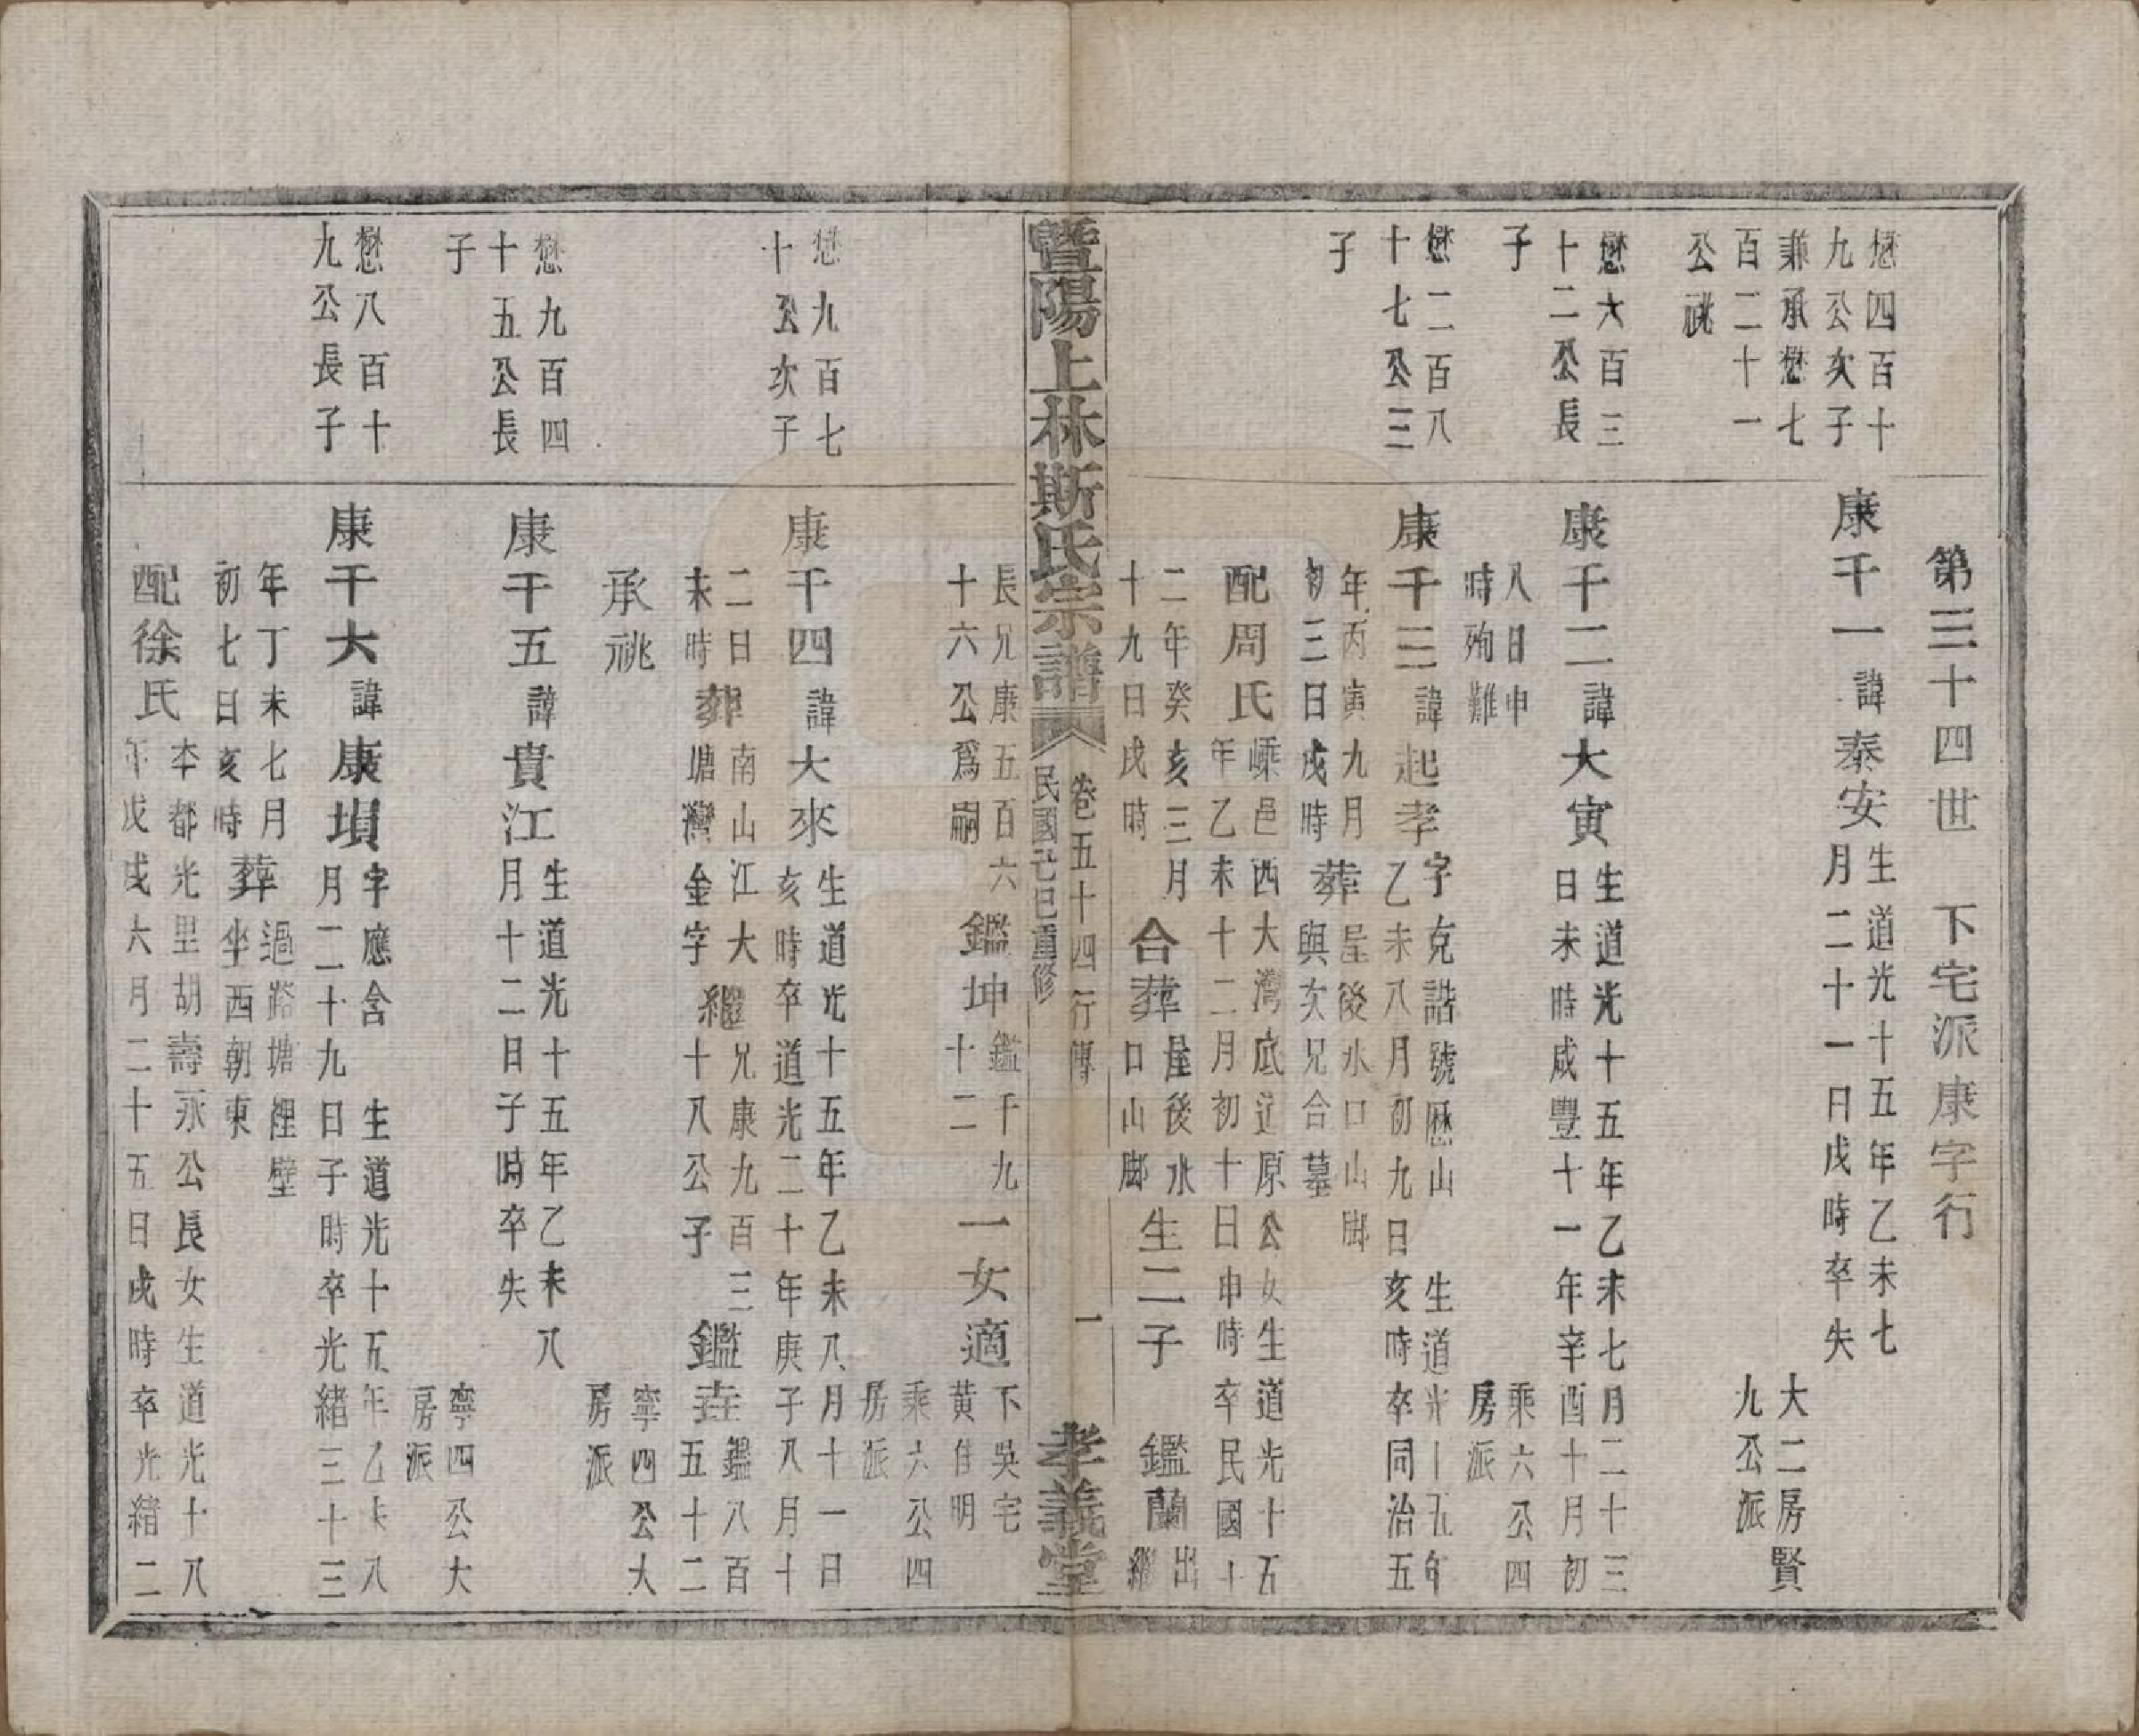 第三十四世　下宅派康字行
懋四百十
九公次子
兼承懋七
百二十一
公祧
康千一 諱 泰安
生道光十五年乙未七
月二十一日戌時卒失
大二房賢
九公派
懋大百三
十二公長
子
康千二 諱 大寅
生道光十五年乙未七月二十三
日未時咸豐十一年辛酉十月初
八日申
時殉難
乘六公四
房派
懋二百八
十七公三
子
康千三 諱 起孝
字克諧號歷山　生道光十五年
乙未八月初九日亥時卒同治五
年丙寅九月
初三日戌時
葬
屋後水口山脚
與次兄合墓
配周氏
嵊邑西大灣底辽原公女生道光十五
年乙未十二月初十日申時卒民國十
二年癸亥三月
十九日戌時
合葬
屋後水
口山脚
生二子
鑑蘭
出
繼
暨陽上林斯氏宗譜
卷五十四 行傳
民國己巳重修
一
孝義堂
長兄康五百六
十六公爲嗣
鑑坤
鑑千九
十二
一女適
下吳宅
黄佳明
乘六公四
房派
懋九百七
十公次子
康千四 諱 大來
生道光十五年乙未八月十一日
亥時卒道光二十年庚子八月十
二日
未時
葬
南山江大
塘灣金字
繼
兄康九百三
十八公子
鑑壵
鑑八百
五十二
承祧
寧四公大
房派
懋九百四
十五公長
子
康千五 諱 貴江
生道光十五年乙未八
月十二日子時卒失
寧四公大
房派
懋八百十
九公長子
康千大 諱 康塤
字應含　生道光十五年乙未八
月二十九日子時卒光緒三十三
年丁未七月
初七日亥時
葬
過路塘裡壁
坐西朝東
配徐氏
本都光里胡壽永公長女生道光十八
年戊戌六月二十五日戌時卒光緒二